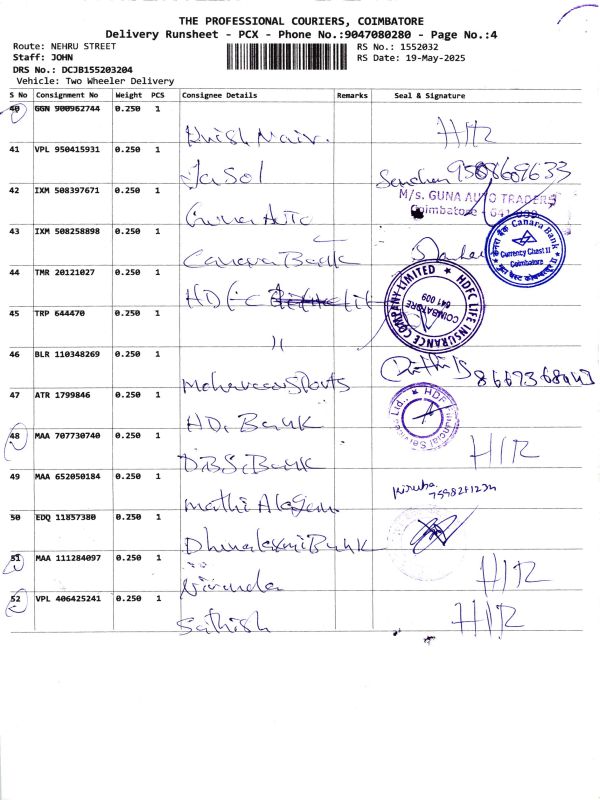 THE PROFESSIONAL COURIERS, COIMBATORE
Delivery Runsheet - PCX - Phone No.:9047080280 - Page No.:4
Route: NEHRU STREET
Staff: JOHN
DRS No.: DCJB155203204
Vehicle: Two Wheeler Delivery
RS No.: 1552032
RS Date: 19-May-2025
S No Consignment No Weight PCS Consignee Details Remarks Seal & Signature
40 GGN 900962744 0.250 1 HIR
41 VPL 950415931 0.250 1 JaSol
42 IXM 508397671 0.250 1 Guna Auto
M/s. GUNA AUTO TRADERS
Coimbatore - 641 009
43 IXM 508258898 0.250 1 Canara Bank
केनरा बैंक Canara Bank
Currency Chest II
Coimbatore
44 TMR 20121027 0.250 1 HDFC
HDFC LIFE INSURANCE COMPANY LIMITED
COIMBATORE
641 009
45 TRP 644470 0.250 1 "
46 BLR 110348269 0.250 1
47 ATR 1799846 0.250 1 HD, Bank
HDF Financial Services Ltd.
48 MAA 707730740 0.250 1 DBS, Bank HIR
49 MAA 652050184 0.250 1 mathi Alagan
50 EDQ 11857380 0.250 1 Dhanalaxmi Bank
51 MAA 111284097 0.250 1 HIR
52 VPL 406425241 0.250 1 Sathish HIR